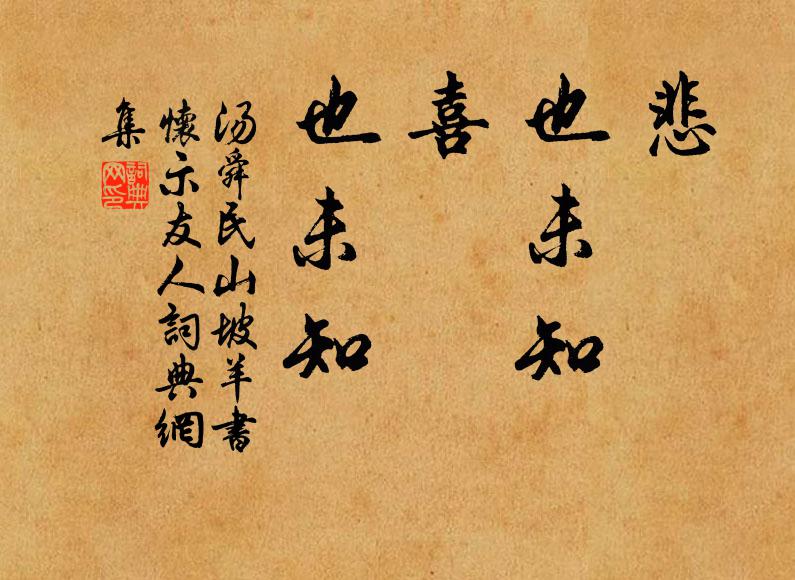 悲
也未知
喜
也未知
湯舜民山坡羊書
懷示友人詞典網
集
詞典
网印